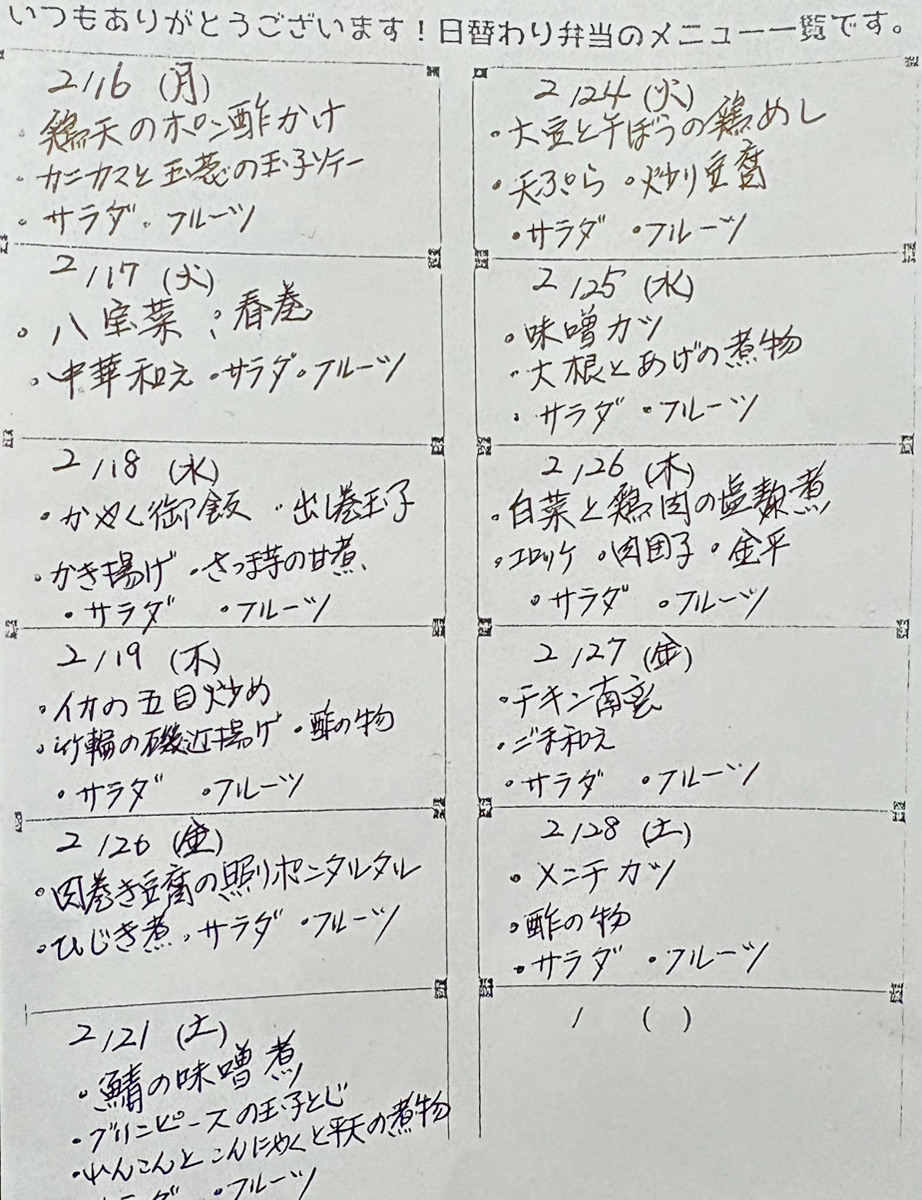 いつもありがとうございます！日替わり弁当のメニュー一覧です。
2/16 (月)
・鶏天のポン酢かけ
・カニカマと玉葱の玉子ソテー
・サラダ ・フルーツ
2/17 (火)
・八宝菜 ・春巻
・中華和え ・サラダ ・フルーツ
2/18 (水)
・かやく御飯 ・出し巻玉子
・かき揚げ ・さつま芋の甘煮
・サラダ ・フルーツ
2/19 (木)
・イカの五目炒め
・竹輪の磯辺揚げ ・酢の物
・サラダ ・フルーツ
2/20 (金)
・肉巻き豆腐の照りポンタルタル
・ひじき煮 ・サラダ ・フルーツ
2/21 (土)
・鯖の味噌煮
・グリンピースの玉子とじ
・れんこんとこんにゃくと平天の煮物
サラダ ・フルーツ
2/24 (火)
・大豆と牛ぼうの鶏めし
・天ぷら ・炒り豆腐
・サラダ ・フルーツ
2/25 (水)
・味噌カツ
・大根とあげの煮物
・サラダ ・フルーツ
2/26 (木)
・白菜と鶏肉の塩麹煮
・コロッケ ・肉団子 ・金平
・サラダ ・フルーツ
2/27 (金)
・チキン南蛮
・ごま和え
・サラダ ・フルーツ
2/28 (土)
・メンチカツ
・酢の物
・サラダ ・フルーツ
/ ( )